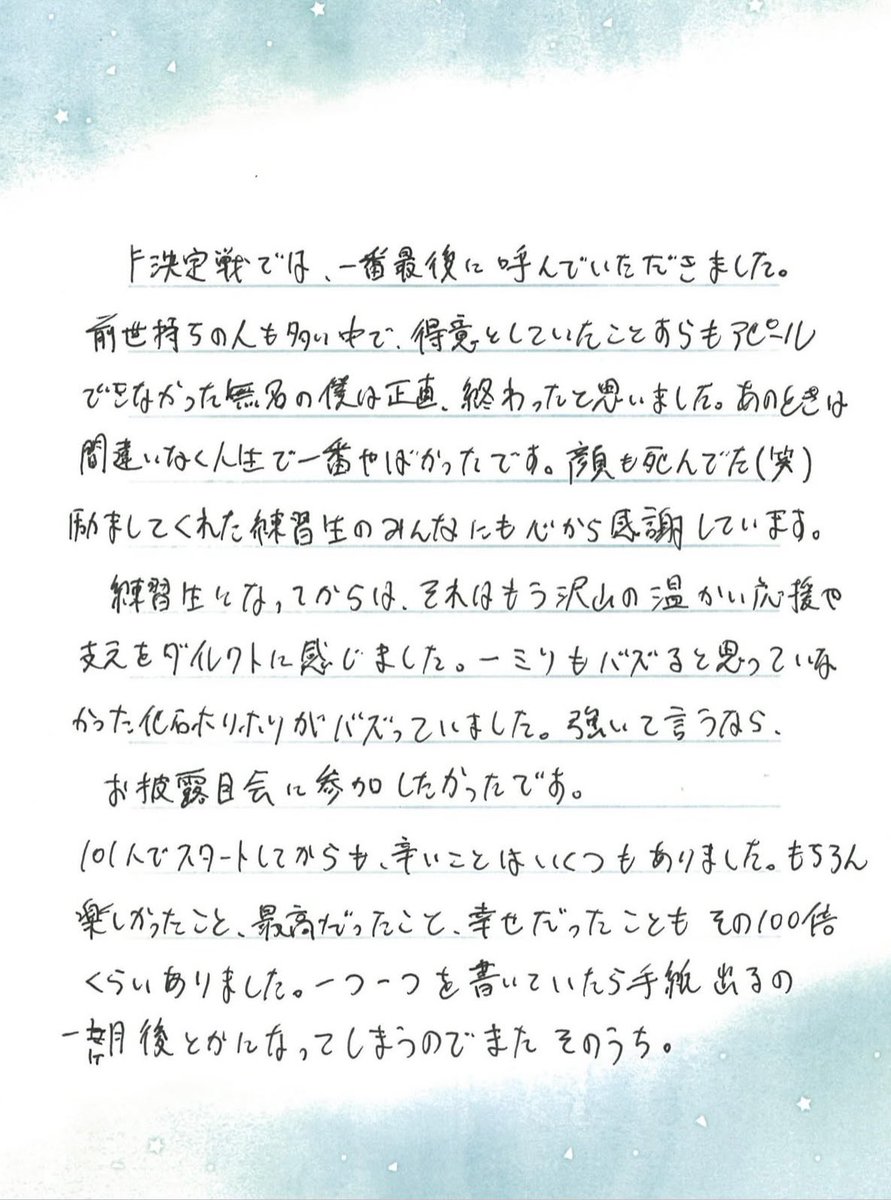 決定戦では、一番最後に呼んでいただきました。
前世持ちの人も多い中で、得意としていたことすらもアピール
できなかった無名の僕は正直、終わったと思いました。あのときは
間違いなく人生で一番やばかったです。顔も死んでた(笑)
励ましてくれた練習生のみんなにも心から感謝しています。
練習生となってからは、それはもう沢山の温かい応援や
支えをダイレクトに感じました。一ミリもバズると思っていな
かった化石ホリホリがバズっていました。強いて言うなら、
お披露目会に参加したかったです。
101人でスタートしてからも、辛いことはいくつもありました。もちろん
楽しかったこと、最高だったこと、幸せだったことも その100倍
くらいありました。一つ一つを書いていたら手紙出るの
一ケ月後とかになってしまうのでまた そのうち。